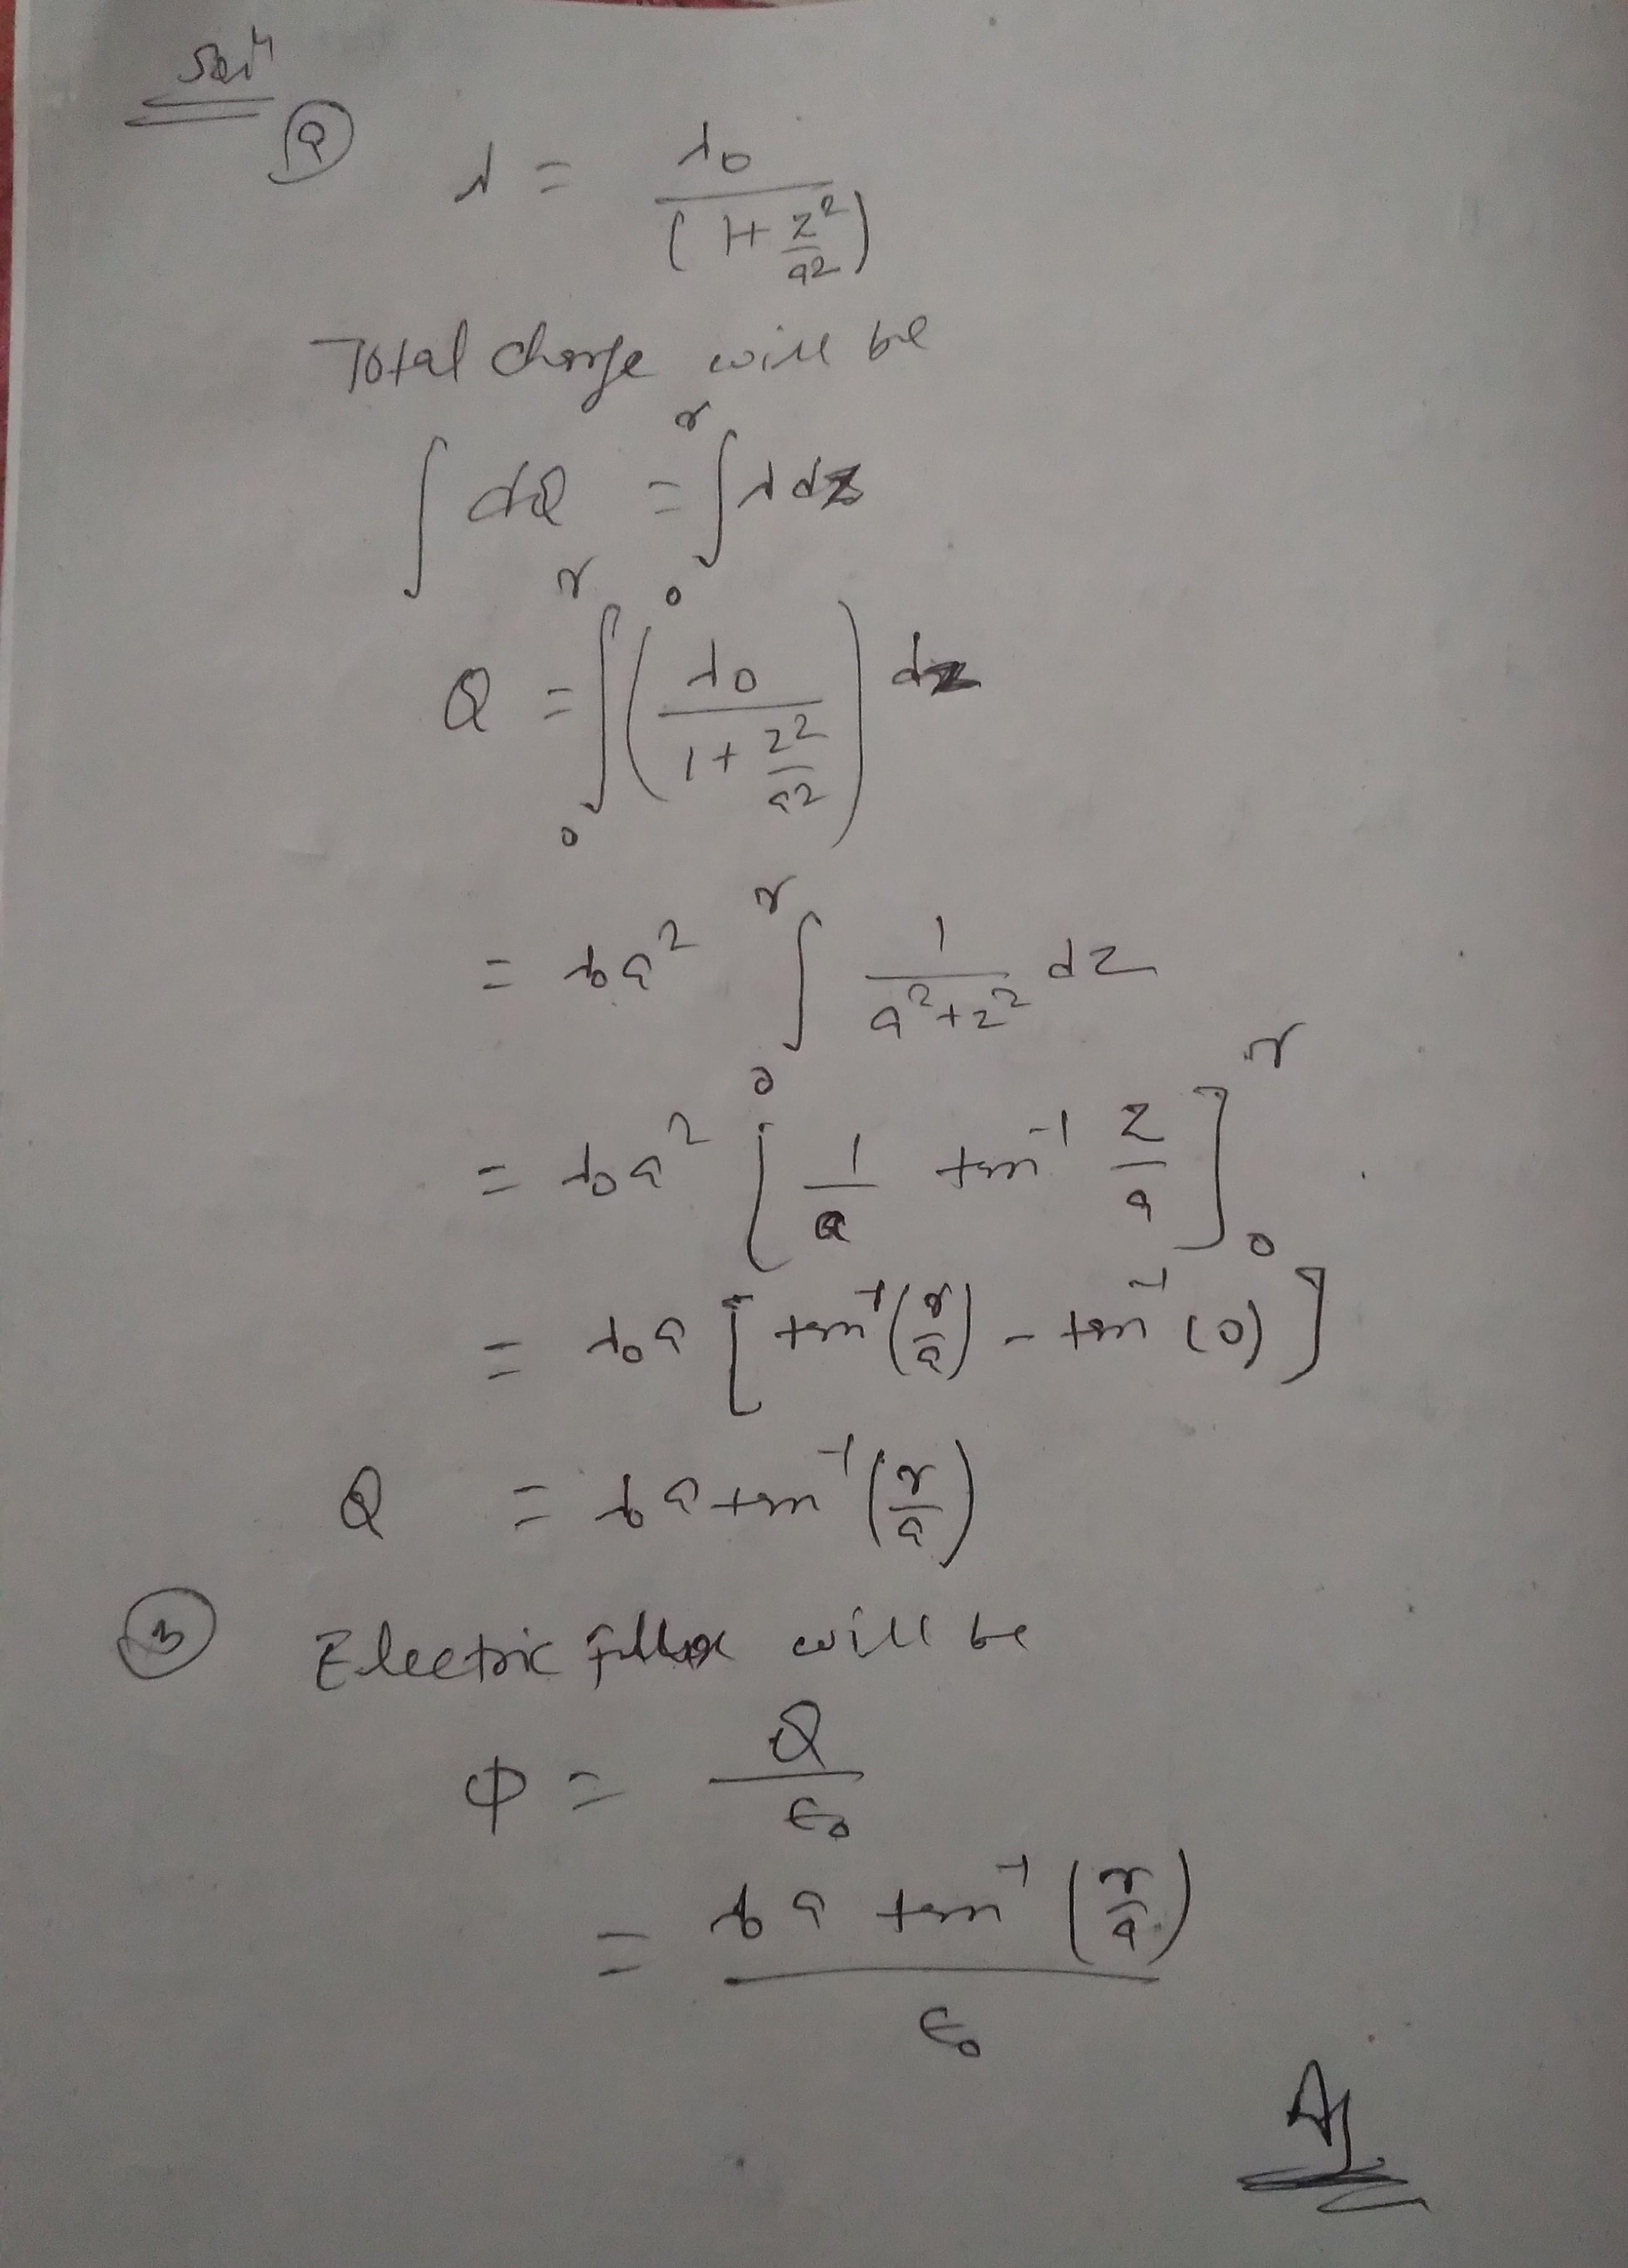 Solⁿ
ⓐ λ = λ₀ / (1 + z²/a²)
Total charge will be
∫ dQ = ∫₀ʳ λ dz
Q = ∫₀ʳ ( λ₀ / (1 + z²/a²) ) dz
= λ₀a² ∫₀ʳ 1/(a²+z²) dz
= λ₀a² [ 1/a tan⁻¹ z/a ]₀ʳ
= λ₀a [ tan⁻¹(r/a) - tan⁻¹(0) ]
Q = λ₀a tan⁻¹(r/a)
ⓑ Electric flux will be
Φ = Q/ε₀
= λ₀a tan⁻¹(r/a) / ε₀